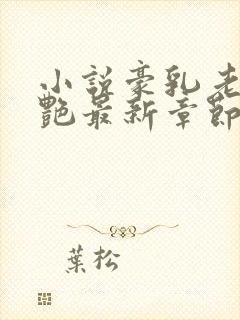 小說豪乳老
艷最新章節
葉松